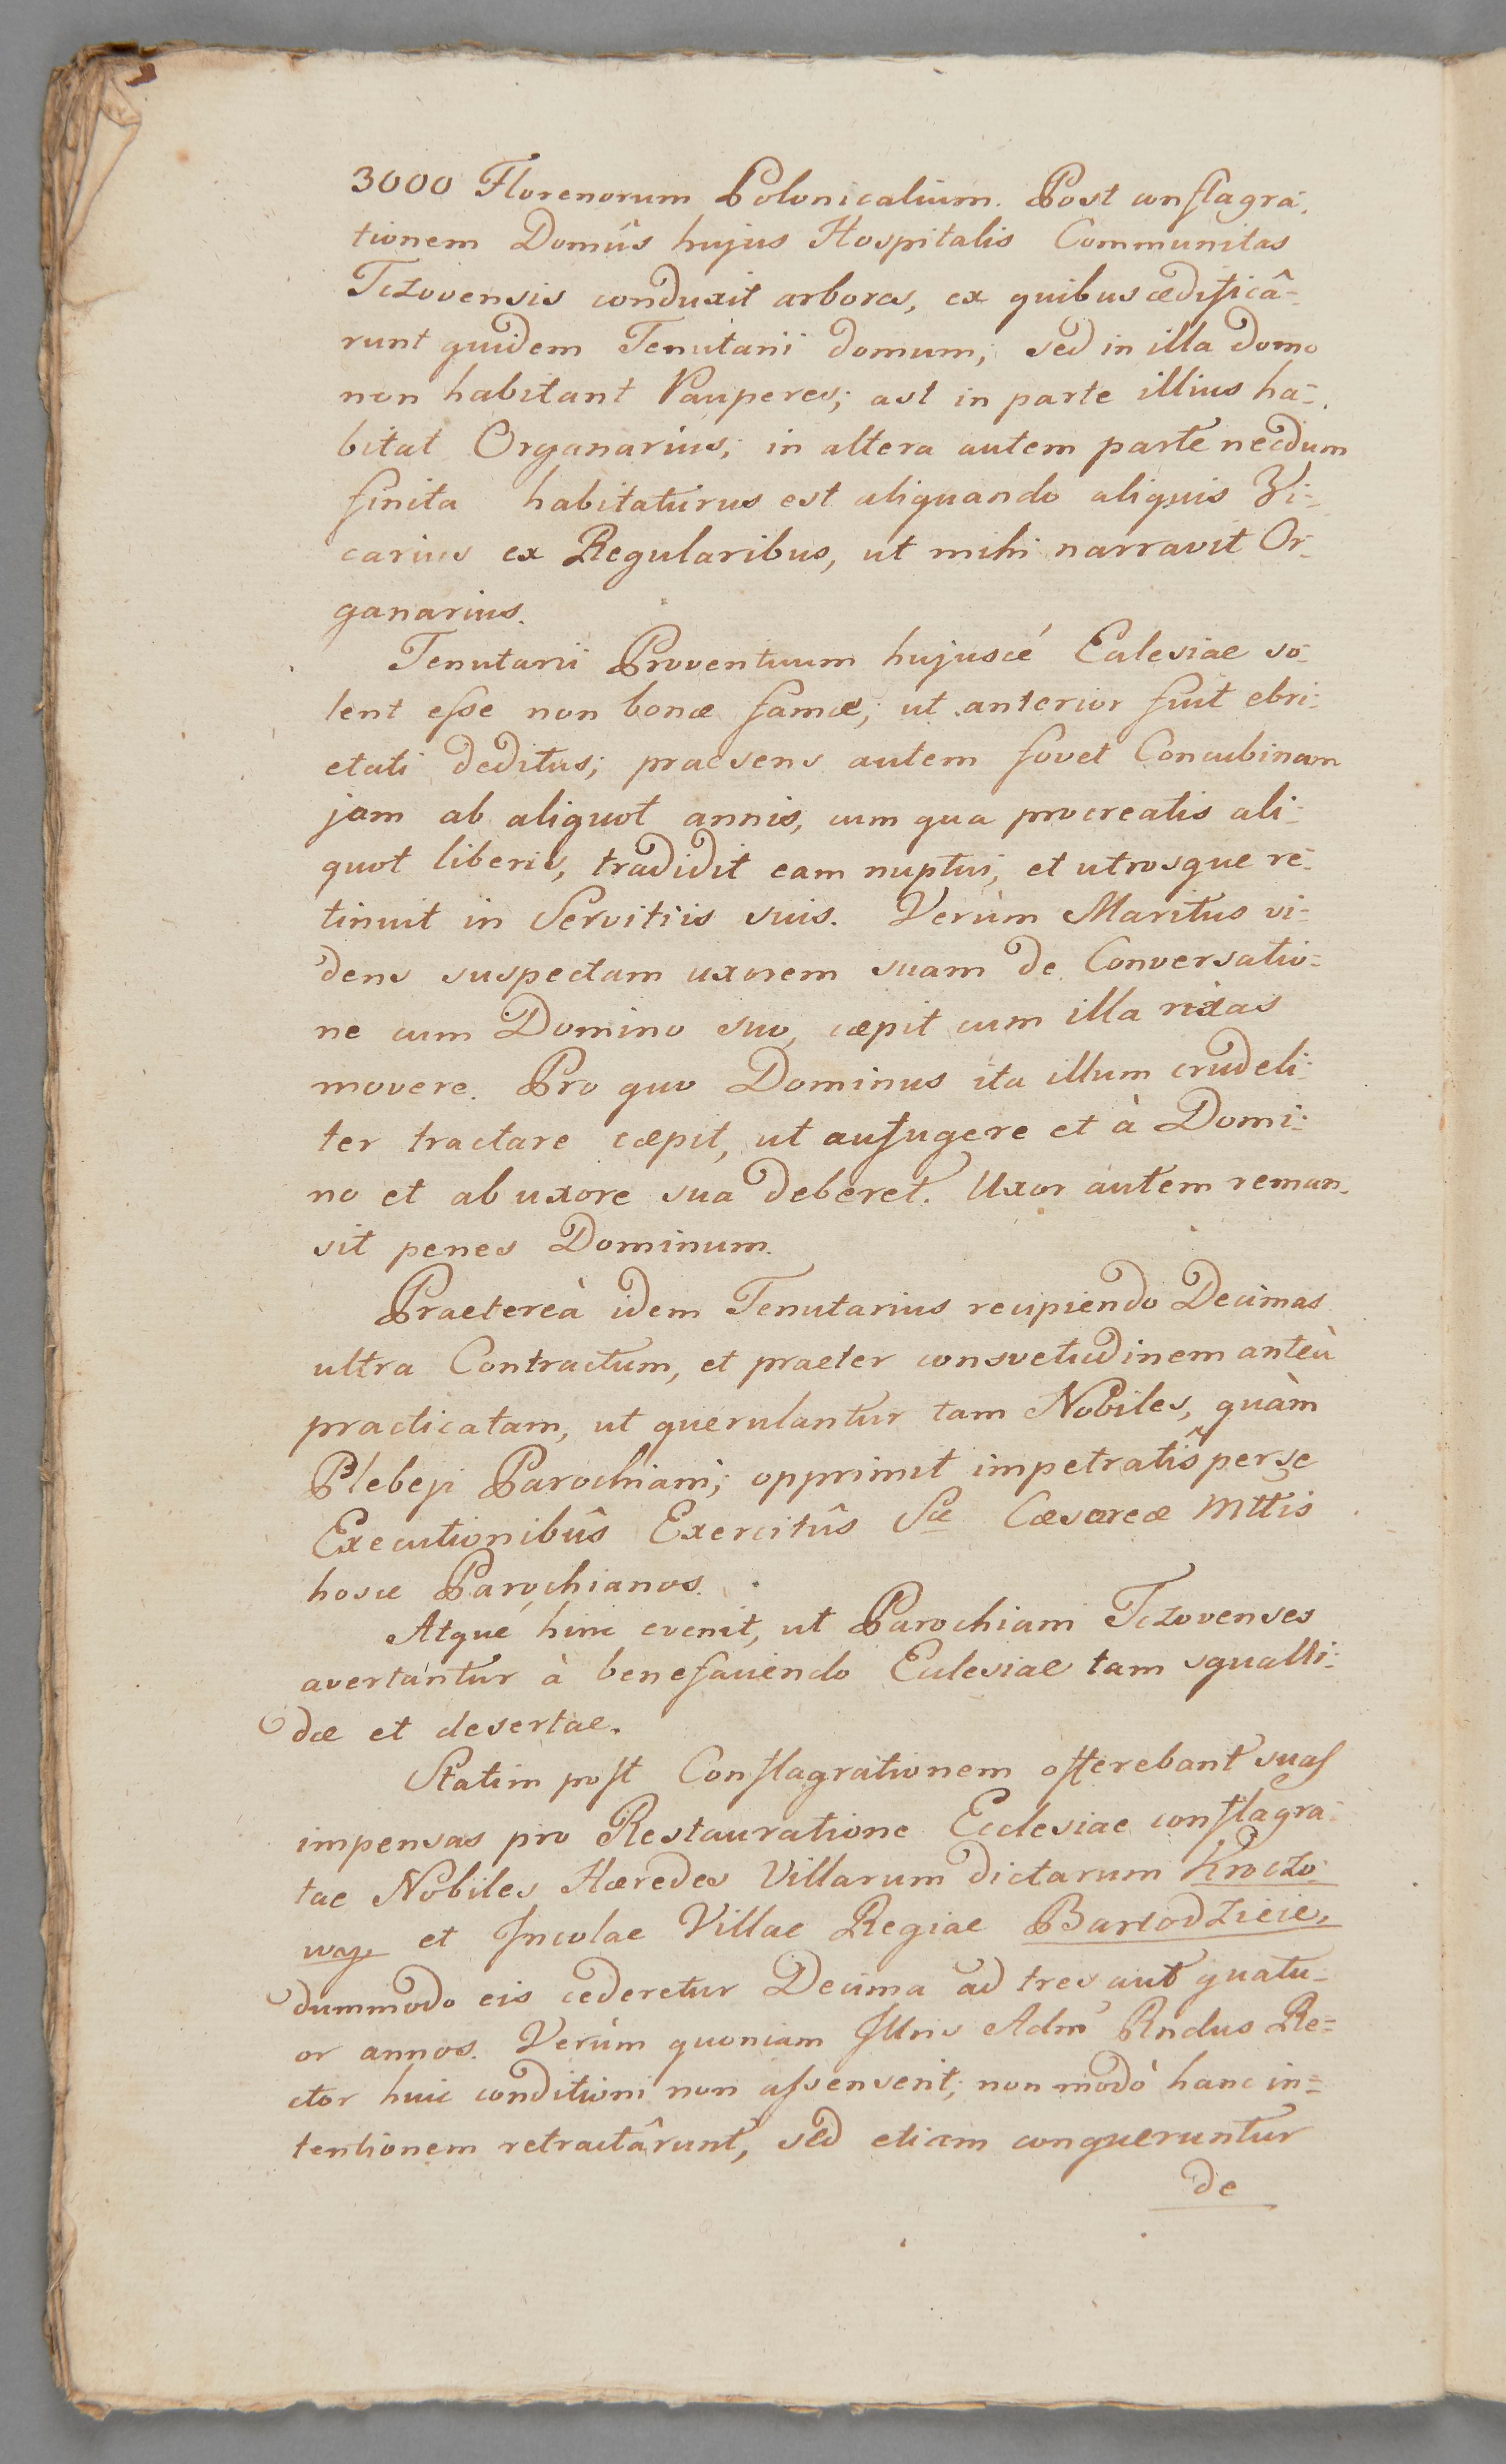 3000 Florenorum Polonicalium. Post conflagra-
tionem Domûs hujus Hospitalis Communitas
Tczovensis conduxit arbores, ex quibus ædificâ-
runt quidem Tenutarii domum; sed in illa domo
non habitant Pauperes; ast in parte illius ha-
bitat Organarius; in altera autem parte necdum
finita habitaturus est aliquando aliquis Vi-
carius ex Regularibus, ut mihi narravit Or-
ganarius.
Tenutarii Proventuum hujuscé Eclesiae so-
lent esse non bonæ famæ; ut anterior fuit ebri-
etati deditus; praesens autem fovet Concubinam
jam ab aliquot annis, cum qua procreatis ali-
quot liberis, tradidit eam nuptui, et utrosque re-
tinuit in Servitiis suis. Verùm Maritus vi-
dens suspectam uxorem suam de Conversatio-
ne cum Domino suo, cæpit cum illa rixas
movere. Pro quo Dominus ita illum crudeli-
ter tractare cæpit, ut aufugere et à Domi-
no et ab uxore sua deberet. Uxor autem reman-
sit penes Dominum.
Praetereà idem Tenutarius recipiendo Decimas
ultra Contractum, et praeter consvetudinem anteà
practicatam, ut querulantur tam Nobiles, quàm
Plebeji Parochiani; opprimit impetratîs per se
Executionibûs Exercitûs Sæ Cæsareæ Mttis
hosce Parochianos.
Atque hinc evenit, ut Parochiani Tczovenses
avertantur à benefaciendo Eclesiae tam squalli-
dæ et desertae.
Statim post Conflagrationem offerebant suas
impensas pro Restauratione Ecclesiae conflagra-
tae Nobiles Hæredes Villarum dictarum Kroczo-
wy et Incolae Villae Regiae Bartodzieie,
dummodo eis cederetur Decima ad tres aut quatu-
or annos. Verùm quoniam Illris Adm Rndus Re-
ctor huic conditioni non assenserit; non modò hanc in-
tentionem retractârunt, sed etiam conqueruntur
de